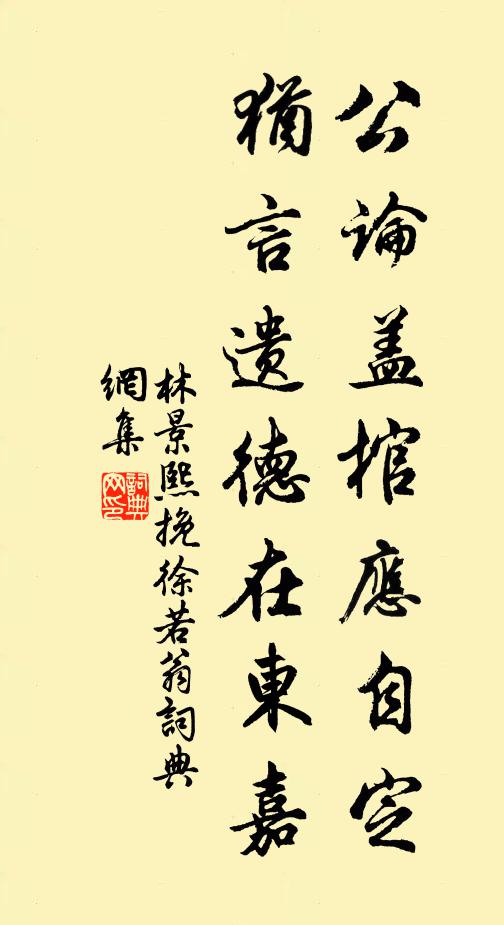 公論盖棺應自定
猶言遺德在東嘉
林景熙挽徐若翁詞典
網集
詞典
网印